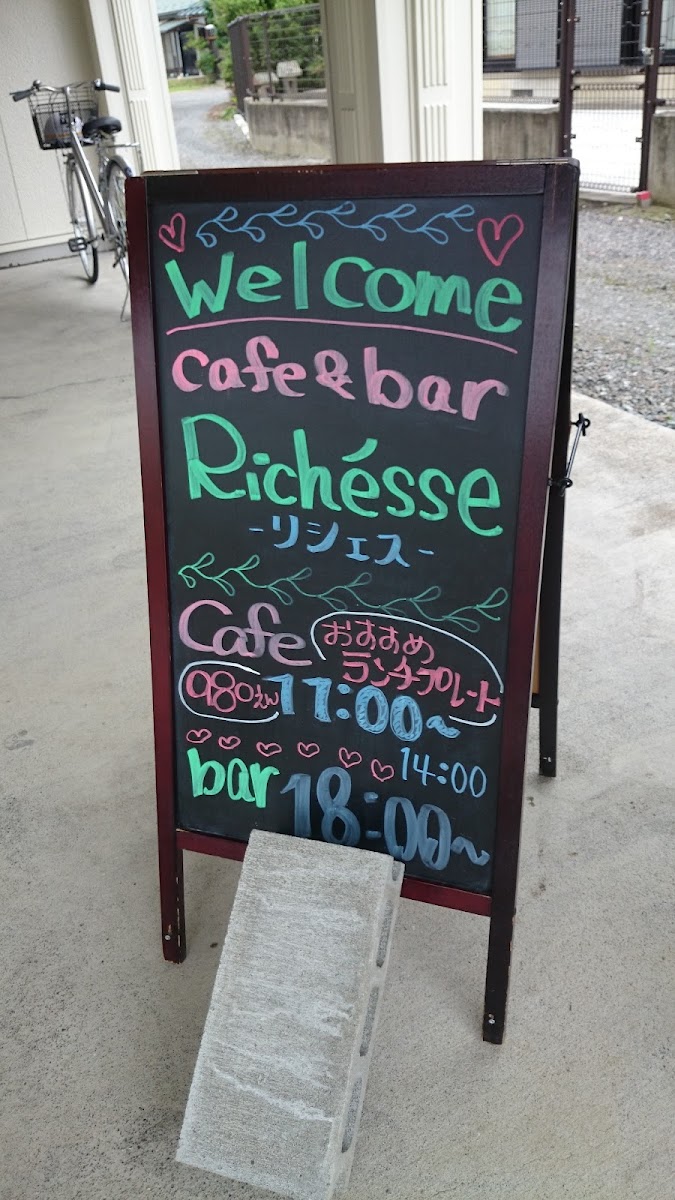 Welcome
cafe & bar
Richésse
-リシェス-
Cafe
おすすめ
ランチプレート
980えん
11:00~
14:00
bar
18:00~